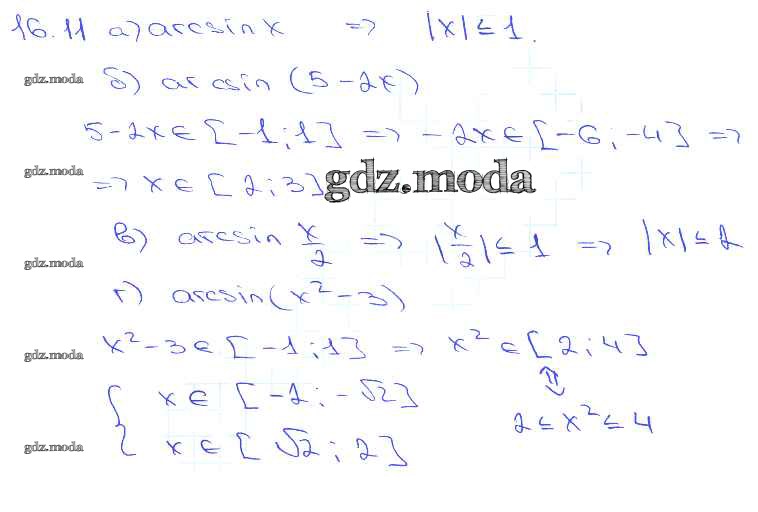 16.11 а) arcsin x => |x| ≤ 1.
gdz.moda б) arcsin (5-2x)
5-2x ∈ [-1; 1] => -2x ∈ [-6; -4] =>
gdz.moda => x ∈ [2; 3] gdz.moda
в) arcsin x/2 => |x/2| ≤ 1 => |x| ≤ 2
gdz.moda
г) arcsin(x² - 3)
gdz.moda x² - 3 ∈ [-1; 1] => x² ∈ [2; 4]
⇕
{ x ∈ [-2; -√2]
2 ≤ x² ≤ 4
gdz.moda x ∈ [√2; 2]